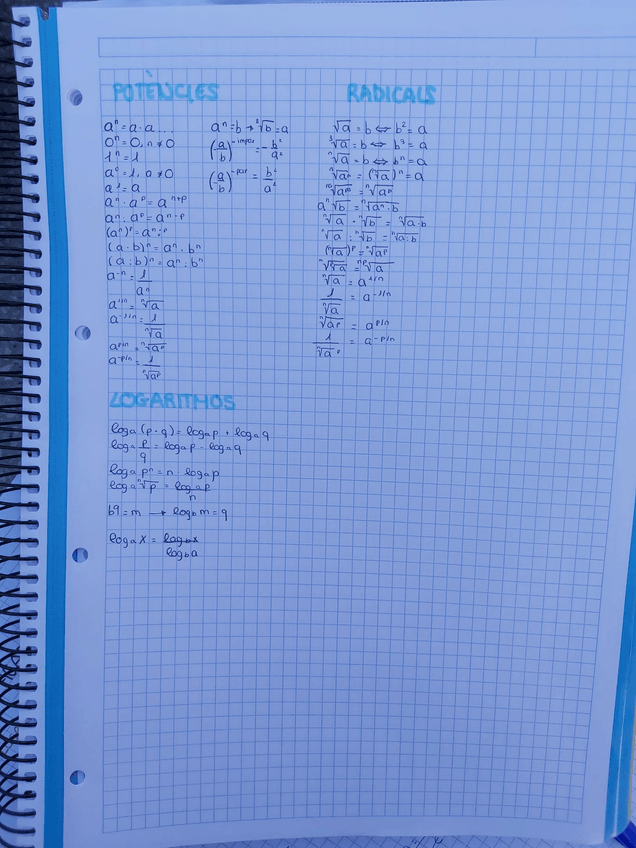 POTÈNCIES
aⁿ = a · a ...
0ⁿ = 0, n ≠ 0
1ⁿ = 1
a⁰ = 1, a ≠ 0
a¹ = a
aⁿ · aᵖ = aⁿ⁺ᵖ
aⁿ : aᵖ = aⁿ⁻ᵖ
(a · b)ⁿ = aⁿ · bⁿ
(a : b)ⁿ = aⁿ : bⁿ
a⁻ⁿ = 1/aⁿ
a¹ᐟⁿ = ⁿ√a
a⁻¹ᐟⁿ = 1/ⁿ√a
a⁻ᵖᐟⁿ = 1/ⁿ√aᵖ
(a/b)^-impar = - b²/a²
(a/b)^-par = b²/a²
RADICALS
√a = b ⇔ b² = a
³√a = b ⇔ b³ = a
ⁿ√a = b ⇔ bⁿ = a
ⁿ√aⁿ = (ⁿ√a)ⁿ = a
a ⁿ√b = ⁿ√aⁿ · b
ⁿ√a · ⁿ√b = ⁿ√a · b
ⁿ√a : ⁿ√b = ⁿ√a : b
(ⁿ√a)ᵖ = ⁿ√aᵖ
ⁿ√a = a¹ᐟⁿ
1/ⁿ√a = a⁻¹ᐟⁿ
ⁿ√aᵖ = aᵖᐟⁿ
1/ⁿ√aᵖ = a⁻ᵖᐟⁿ
LOGARITMOS
logₐ (p · q) = logₐ p + logₐ q
logₐ p/q = logₐ p - logₐ q
logₐ pⁿ = n · logₐ p
logₐ ⁿ√p = logₐ p/n
b^q = m → log_b m = q
logₐ x = log_b x/log_b a